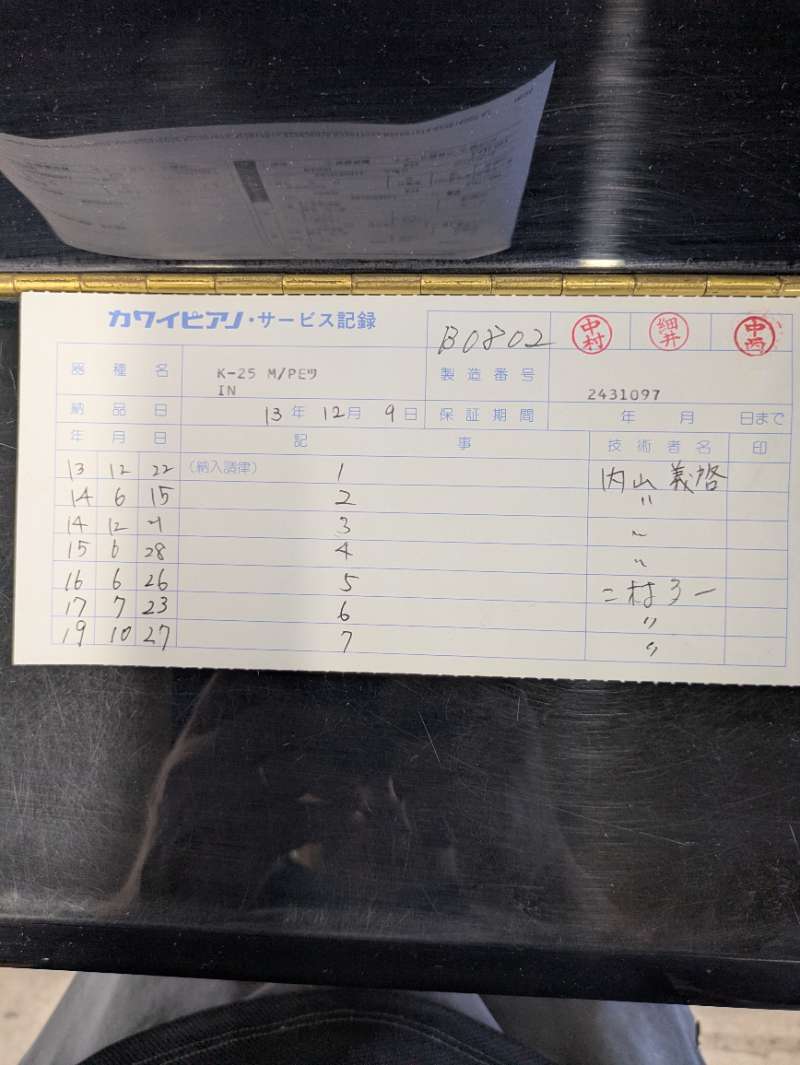 カワイピアノ・サービス記録
B0802 中村 細井 中西
器種名 K-25 M/PEツ IN 製造番号 2431097
納品日 13年 12月 9日 保証期間 年 月 日まで
年 月 日 記事 技術者名 印
13 12 22 (納入調律) 1 内山義啓
14 6 15 2 〃
14 12 3 〃
15 6 28 4 〃
16 6 26 5 二村
17 7 23 6 〃
19 10 27 7 〃